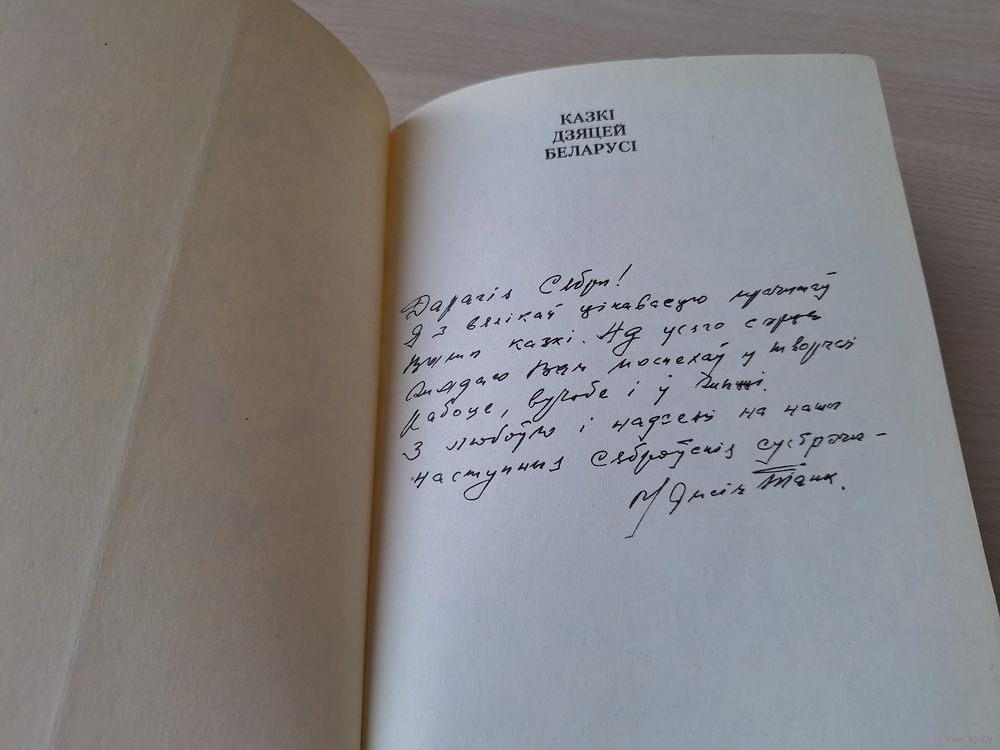 КАЗКІ
ДЗЯЦЕЙ
БЕЛАРУСІ
Дарагія Сябры!
Я з вялікай цікавасцю прачытаў
Вашы казкі. Ад усяго сэрца
жадаю Вам поспехаў у творчай
рабоце, вучобе і ў жыцці.
З любоўю і надзеяй на нашы
наступныя сяброўскія сустрэчы –
Максім Танк.
www.ay.by